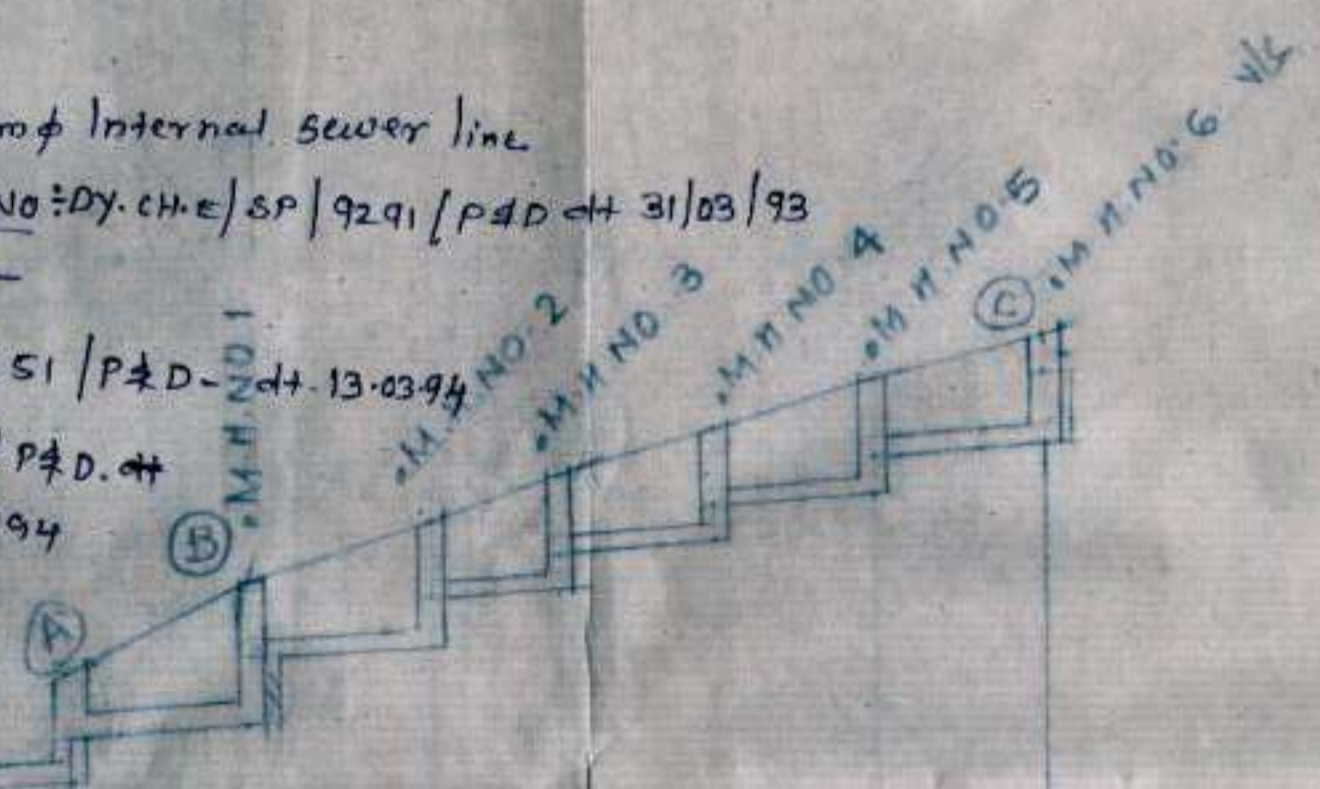 mϕ Internal sewer line
NO ÷ DY. CH. E/SP/9291/P&D dt 31/03/93
51 /P&D - dt. 13.03.94
P&D. dt
94
A
B
.M.H.NO 1
.M.H.NO.2
.M.H NO.3
.M.H NO.4
.M.H.NO.5
C
.M.H.NO.6